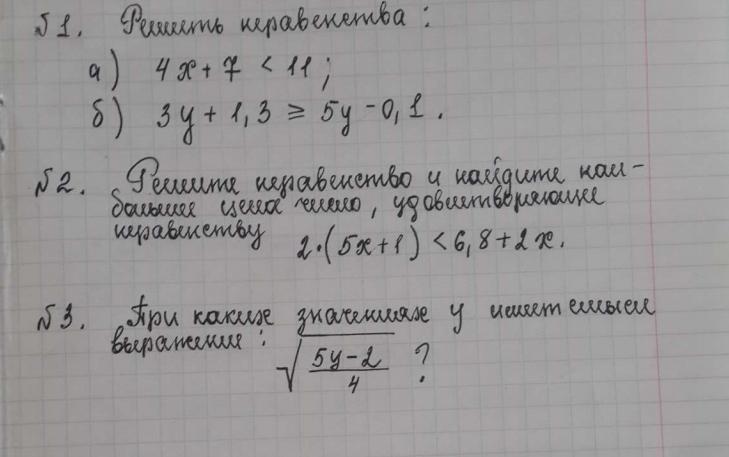 №1. Решить неравенства:
а) 4x + 7 < 11;
б) 3y + 1,3 ≥ 5y - 0,1.
№2. Решите неравенство и найдите наи-
большее целое число, удовлетворяющее
неравенству 2·(5x+1) < 6,8 + 2x.
№3. При каких значениях y имеет смысл
выражение: √((5y-2)/4) ?